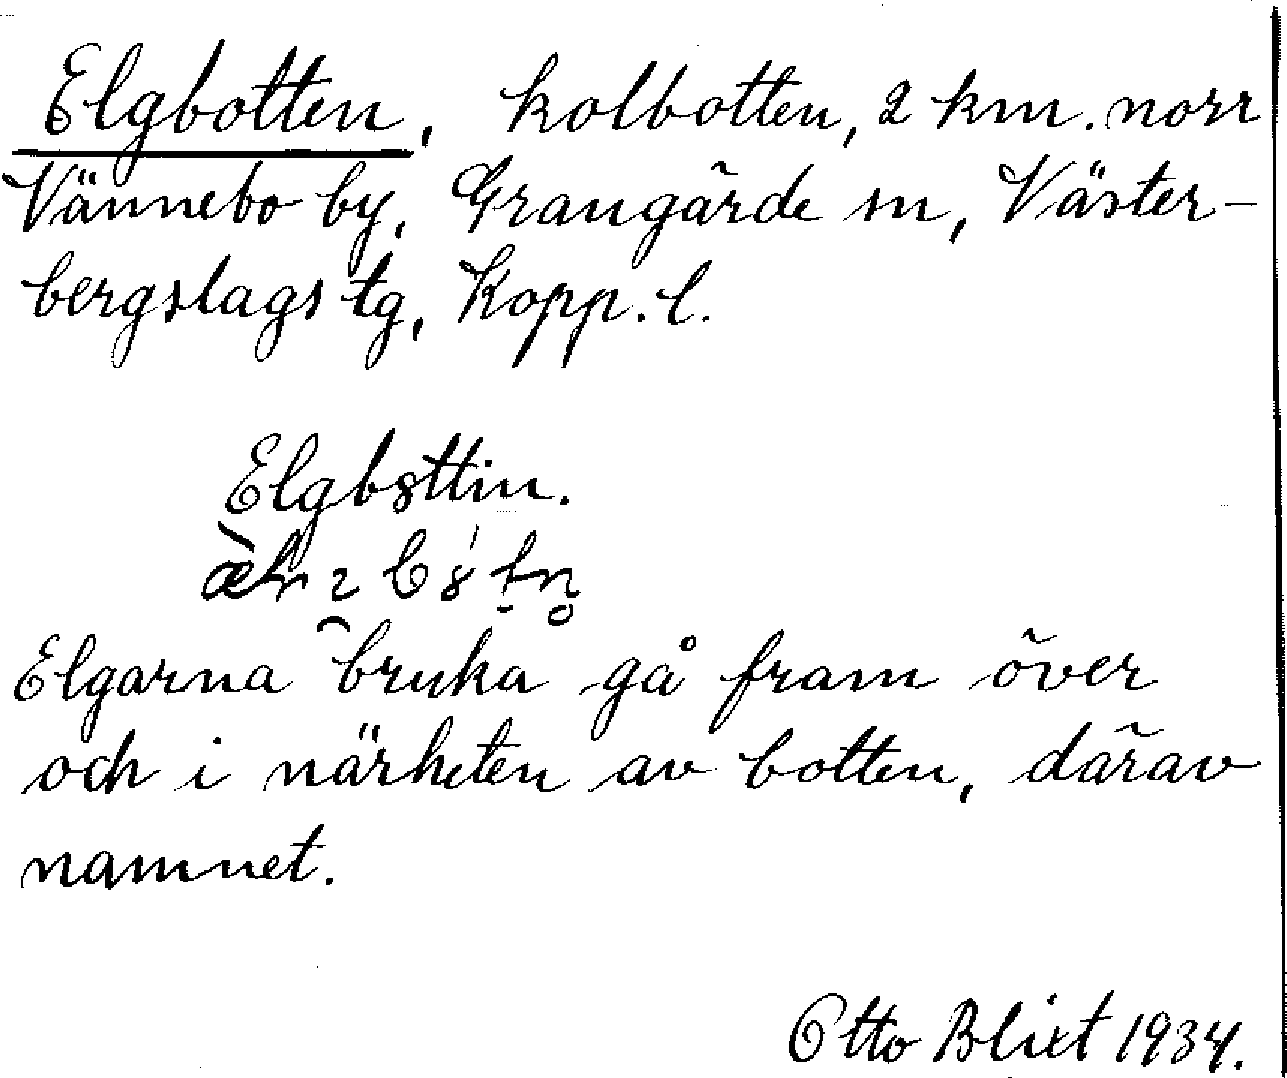 Elgbotten, kolbotten, 2 km. norr
Vännebo by, Grangärde sn, Väster-
bergslags tg, Kopp. l.
Elgbȣttin.
Elgarna bruka gå fram över
och i närheten av botten, därav
namnet.
Otto Blixt 1934.